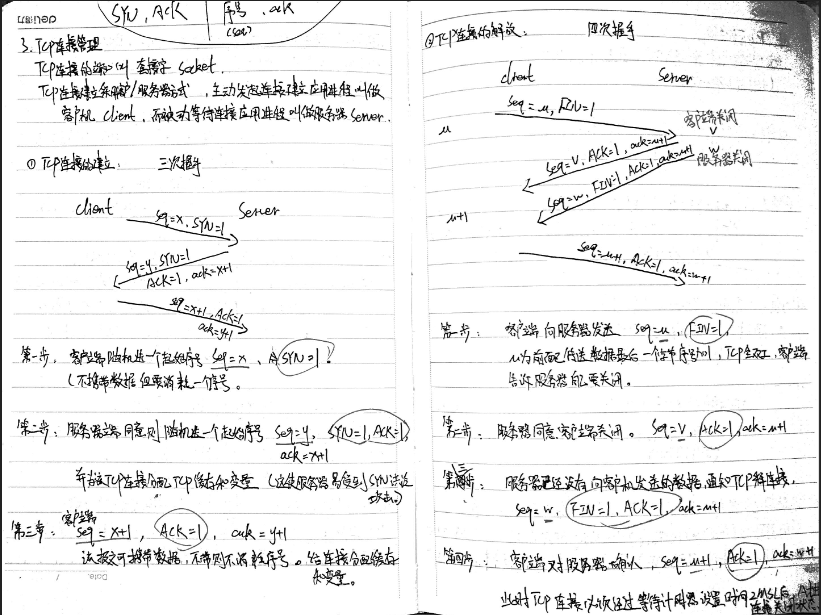 SYN, ACK
序号, ack
(seq)
3. TCP连接管理
TCP连接的端口叫套接字 socket.
TCP连接建立采用客户/服务器方式,主动发起连接建立应用进程叫做
客户机 client, 而被动等待连接应用进程叫做服务器 server.
① TCP连接的建立: 三次握手
client Server
seq=x, SYN=1
seq=y, SYN=1
ACK=1, ack=x+1
seq=x+1, ACK=1
ack=y+1
第一步: 客户端随机选一个起始序号 seq=x, SYN=1!
(不携带数据但要消耗一个序号。
第二步: 服务器端同意则随机选一个起始序号 seq=y, SYN=1, ACK=1,
ack=x+1
并为该TCP连接分配TCP缓存和变量 (这使服务器易受到SYN洪泛
攻击。)
客户端
第三步: seq=x+1, ACK=1, ack=y+1
该报文可携带数据,不带则不消耗序号。给连接分配缓存
和变量。
②TCP连接的解放: 四次握手
client Server
seq=u, FIN=1
u
客户端关闭
seq=v, ACK=1, ack=u+1
seq=w, FIN=1, ACK=1, ack=u+1
服务器关闭
u+1
seq=u+1, ACK=1, ack=w+1
第一步: 客户端向服务器发送 seq=u, FIN=1,
u为前面传送数据最后一个字节序号加1, 客户端
告诉服务器自己要关闭。
第二步: 服务器同意客户端关闭。 seq=v, ACK=1, ack=u+1
第三步: 服务器已经没有向客户机发送的数据,通知TCP释放连接,
seq=w, FIN=1, ACK=1, ack=u+1
第四步: 客户端对服务器确认, seq=u+1, ACK=1, ack=w+1
此时TCP连接必须经过等待计时器设置时间2MSL后,
连接关闭状态
Date.